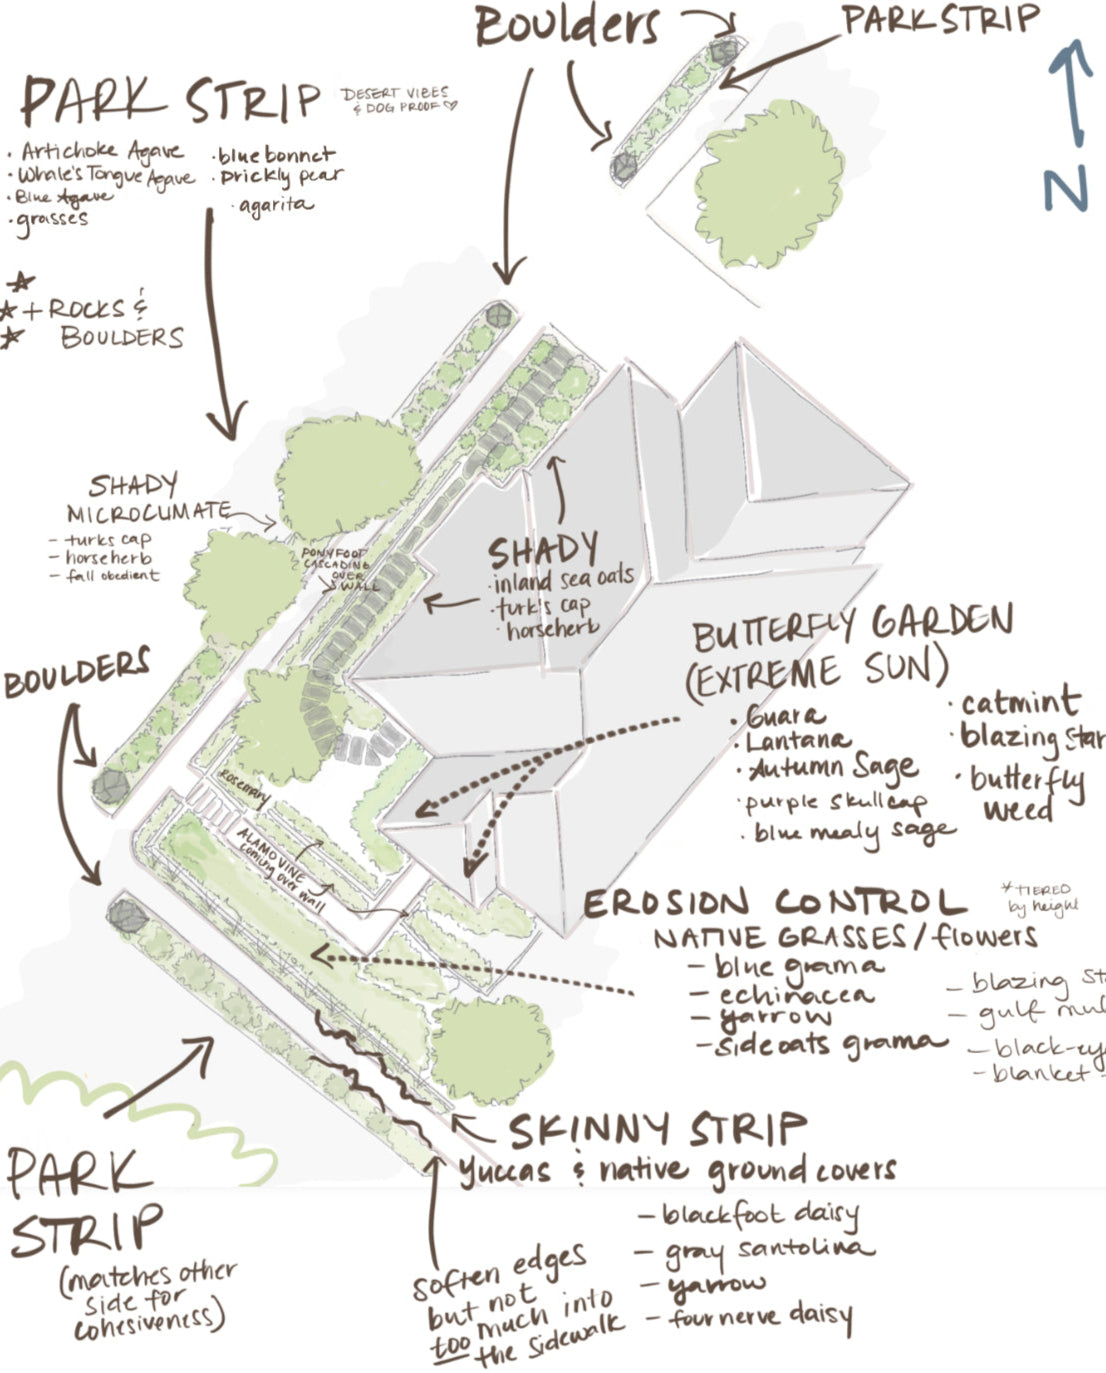 Boulders
PARK STRIP
N
PARK STRIP
DESERT VIBES
& DOG PROOF ♡
· Artichoke Agave
· Whale's Tongue Agave
· Blue Agave
· grasses
· blue bonnet
· prickly pear
· agarita
+ ROCKS &
BOULDERS
SHADY
MICROCLIMATE
- turks cap
- horseherb
- fall obedient
PONYFOOT
CASCADING
OVER
WALL
SHADY
· inland sea oats
· turk's cap
· horseherb
BOULDERS
BUTTERFLY GARDEN
(EXTREME SUN)
· Guara
· Lantana
· Autumn Sage
· purple skullcap
· blue mealy sage
· catmint
· blazing star
· butterfly
weed
rosemary
ALAMO VINE
coming over
wall
EROSION CONTROL
* TIERED
by height
NATIVE GRASSES/flowers
- blue grama
- echinacea
- yarrow
- sideoats grama
- blazing st
- gulf mu
- black-ey
- blanket -
PARK
STRIP
(matches other
side for
cohesiveness)
SKINNY STRIP
yuccas & native ground covers
- blackfoot daisy
- gray santolina
- yarrow
- four nerve daisy
soften edges
but not
too much into
the sidewalk